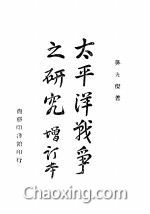 太平洋戰爭
之研究 增訂本
商務印書館印行
Chaoxing.com